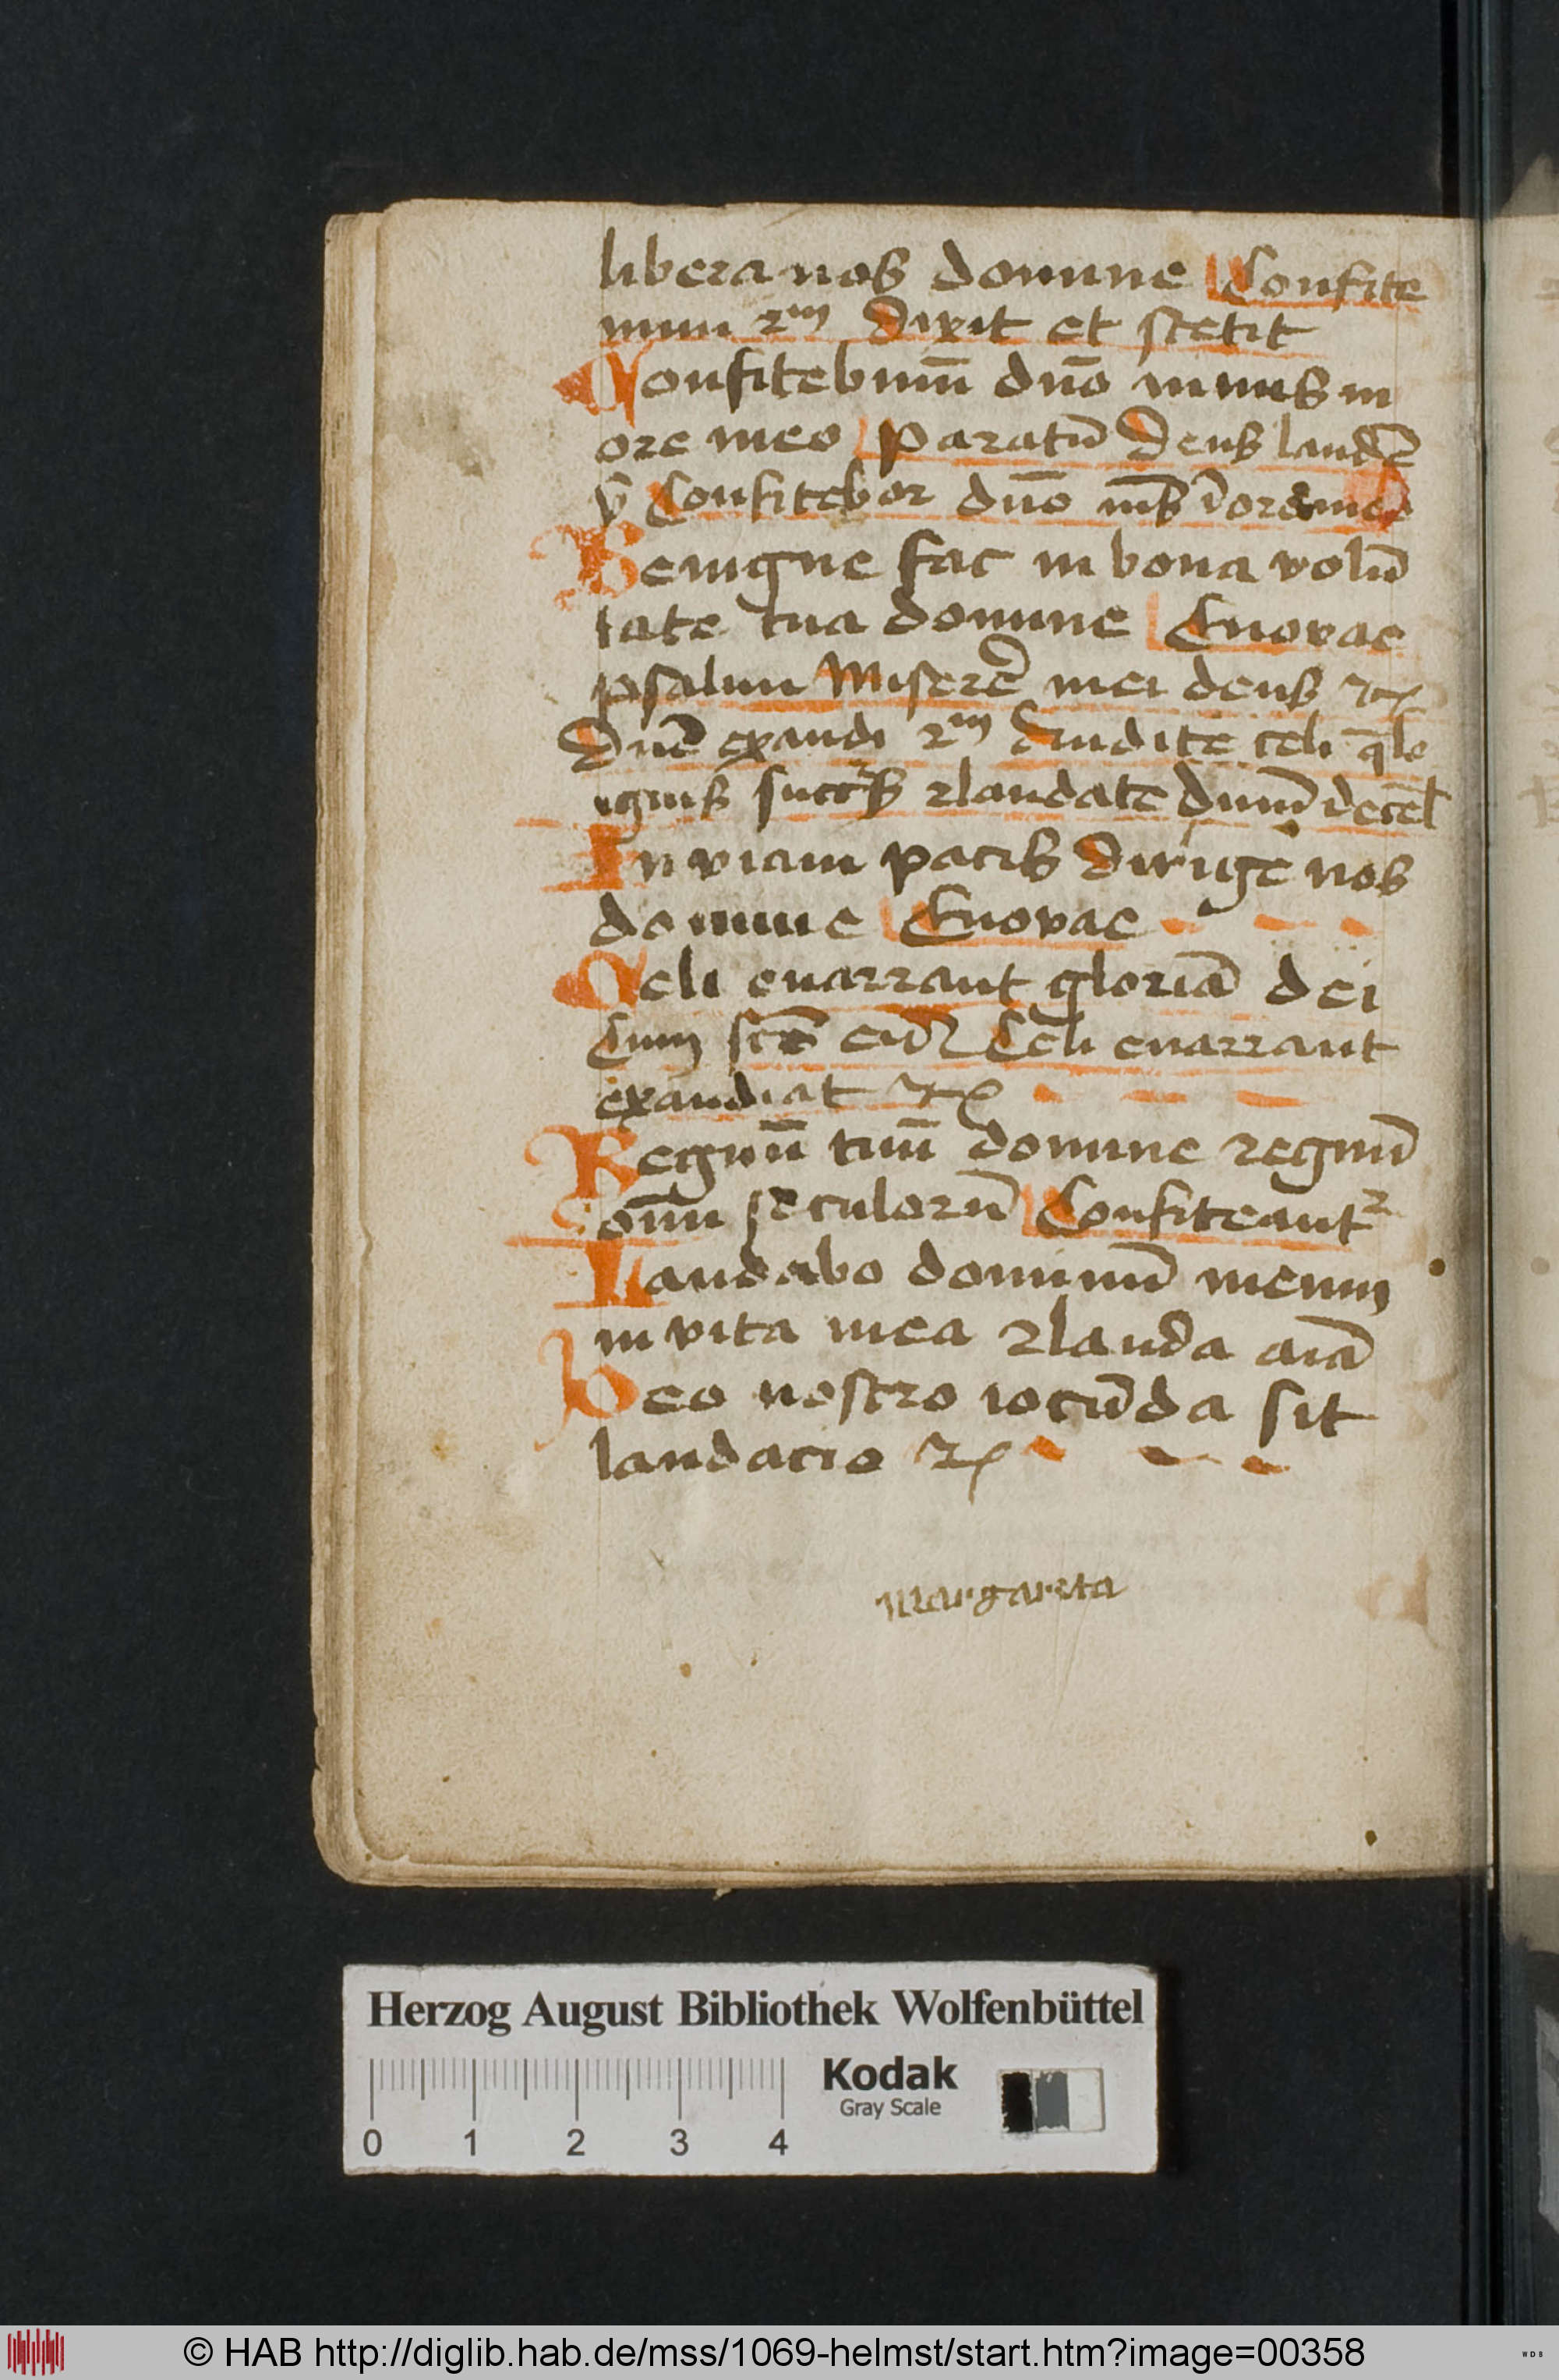 libera nos domine Confite
mini 2m dixit et stetit
Confitebimū dn̄o nimis in
ore meo Paratū Deus laudē
v̄ Confitebor dn̄o nīs ī ore meo
Benigne fac in bona volū
tate tua domine Euovae
psalmi Miserē mei deus
Dnē exaudi 2m Audite celi
ignis succēs laudate dnm̄ de cel
In viam pacis dirige nos
domine Euovae
Celi enarrant gloriā dei
Cum Celi enarrant
exaudiat
Regnū tuū domine regnū
omiū seculorū Confiteant
Laudabo dominū meum
in vita mea lauda aiā
Deo nostro iocūda sit
laudacio
margareta
Herzog August Bibliothek Wolfenbüttel
Kodak
Gray Scale
0 1 2 3 4
© HAB http://diglib.hab.de/mss/1069-helmst/start.htm?image=00358
WDB